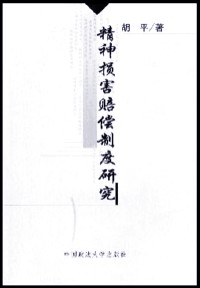 胡 平/著
精神损害赔偿制度研究
中国政法大学出版社